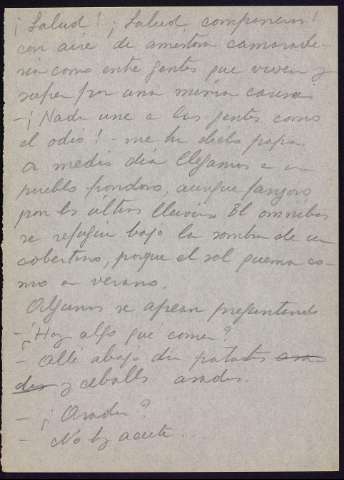 ¡Salud! ¡Salud compañeros!
con aire de amistosa camarade-
ria como entre gentes que viven y
sufren por una misma causa.
-¡Nada une a las gentes como
el odio! - me ha dicho papá.
A medio dia llegamos a un
pueblo frondoso, aunque fangoso
por las últimas lluvias. El omnibus
se refugia bajo la sombra de un
cobertizo, porque el sol quema co-
mo en verano.
Algunos se apean preguntando
-¿Hay algo que comer?
- Alli abajo dan patatas asa-
das y cebollas asadas.
- ¿Asadas?
- No hay aceite...